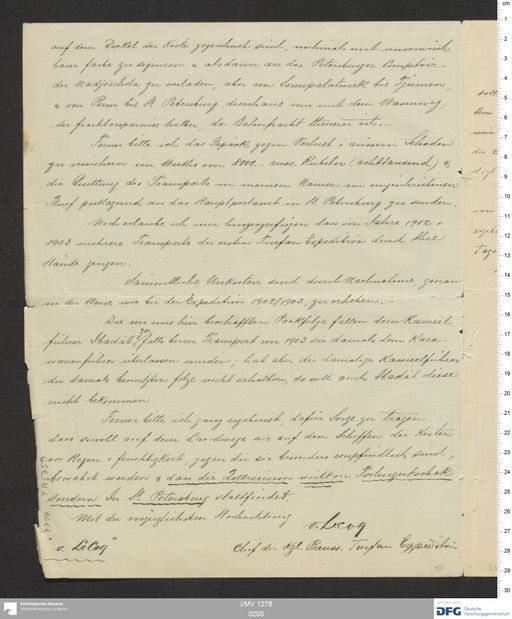 auf dem Deckel der Kiste gezeichnet sind, nochmals mit unverwisch-
barer farbe zu signieren & alsdann an das Petersburger Comptoir
der Nadjeschda zu verladen, aber von Semipalatinsk bis Tjumen,
& von Perm bis St Petersburg durchaus nur mit dem Wasserweg,
der frachtersparniss halber, da Bahnfracht theurer ist.
Ferner bitte ich das Gepäck gegen Verlust & äussern Schaden
zu versichern im Werthe von 8000.- russ. Rubeln (achttausend) &
die Quittung des Transports in meinem Namen im eingeschriebenen
Brief postlagernd an das Hauptpostamt in St. Petersburg zu senden.
Noch erlaube ich mir hinzuzufügen dass im Jahre 1902 &
1903 mehrere Transporte der ersten Turfan Expedition durch Ihre
Hände gingen.
Sämmtliche Unkosten sind durch Nachnahme, genau
in der Weise wie bei der Expedition 1902/1903, zu erheben. -
Die von uns hier beschafften Packfilze fallen dem Kameel-
führer Ibadal zu, falls beim Transport von 1903 sie damals dem Kara-
wanenführer überlassen wurden; hat aber der damalige Kameelführer
die damals benutzten filze nicht erhalten, so soll auch Ibadal diese
nicht bekommen.
Ferner bitte ich ganz ergebenst, dafür Sorge zu tragen
dass sowohl auf dem Landwege wie auf den Schiffen die Kisten
vor Regen & feuchtigkeit, gegen die sie besonders empfindlich sind,
bewahrt werden & dass die Zollrevision nicht in Tschugutschak
sondern in St. Petersburg stattfindet.
Mit der vorzüglichsten Hochachtung
v. Lecoq
"v. LeCoq"
Chef der Kgl. Preuss. Turfan Expedition
Ethnologisches Museum
I/MV 1278
0205
DFG
Deutsche
Forschungsgemeinschaft